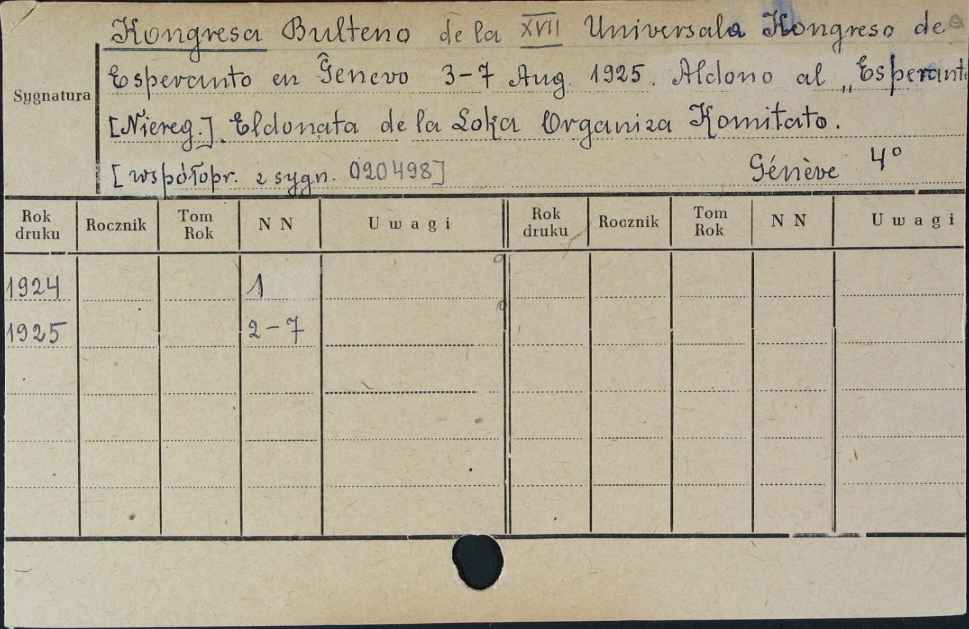 Kongresa Bulteno de la XVII Universala Kongreso de
Esperanto en Ĝenevo 3-7 Aug. 1925. Aldono al „Esperanto
Sygnatura
[Niereg.] Eldonata de la Loka Organiza Komitato.
[współopr. z sygn. 020498] Génève 4°
Rok druku Rocznik Tom Rok N N Uwagi Rok druku Rocznik Tom Rok N N Uwagi
1924 1
1925 2-7